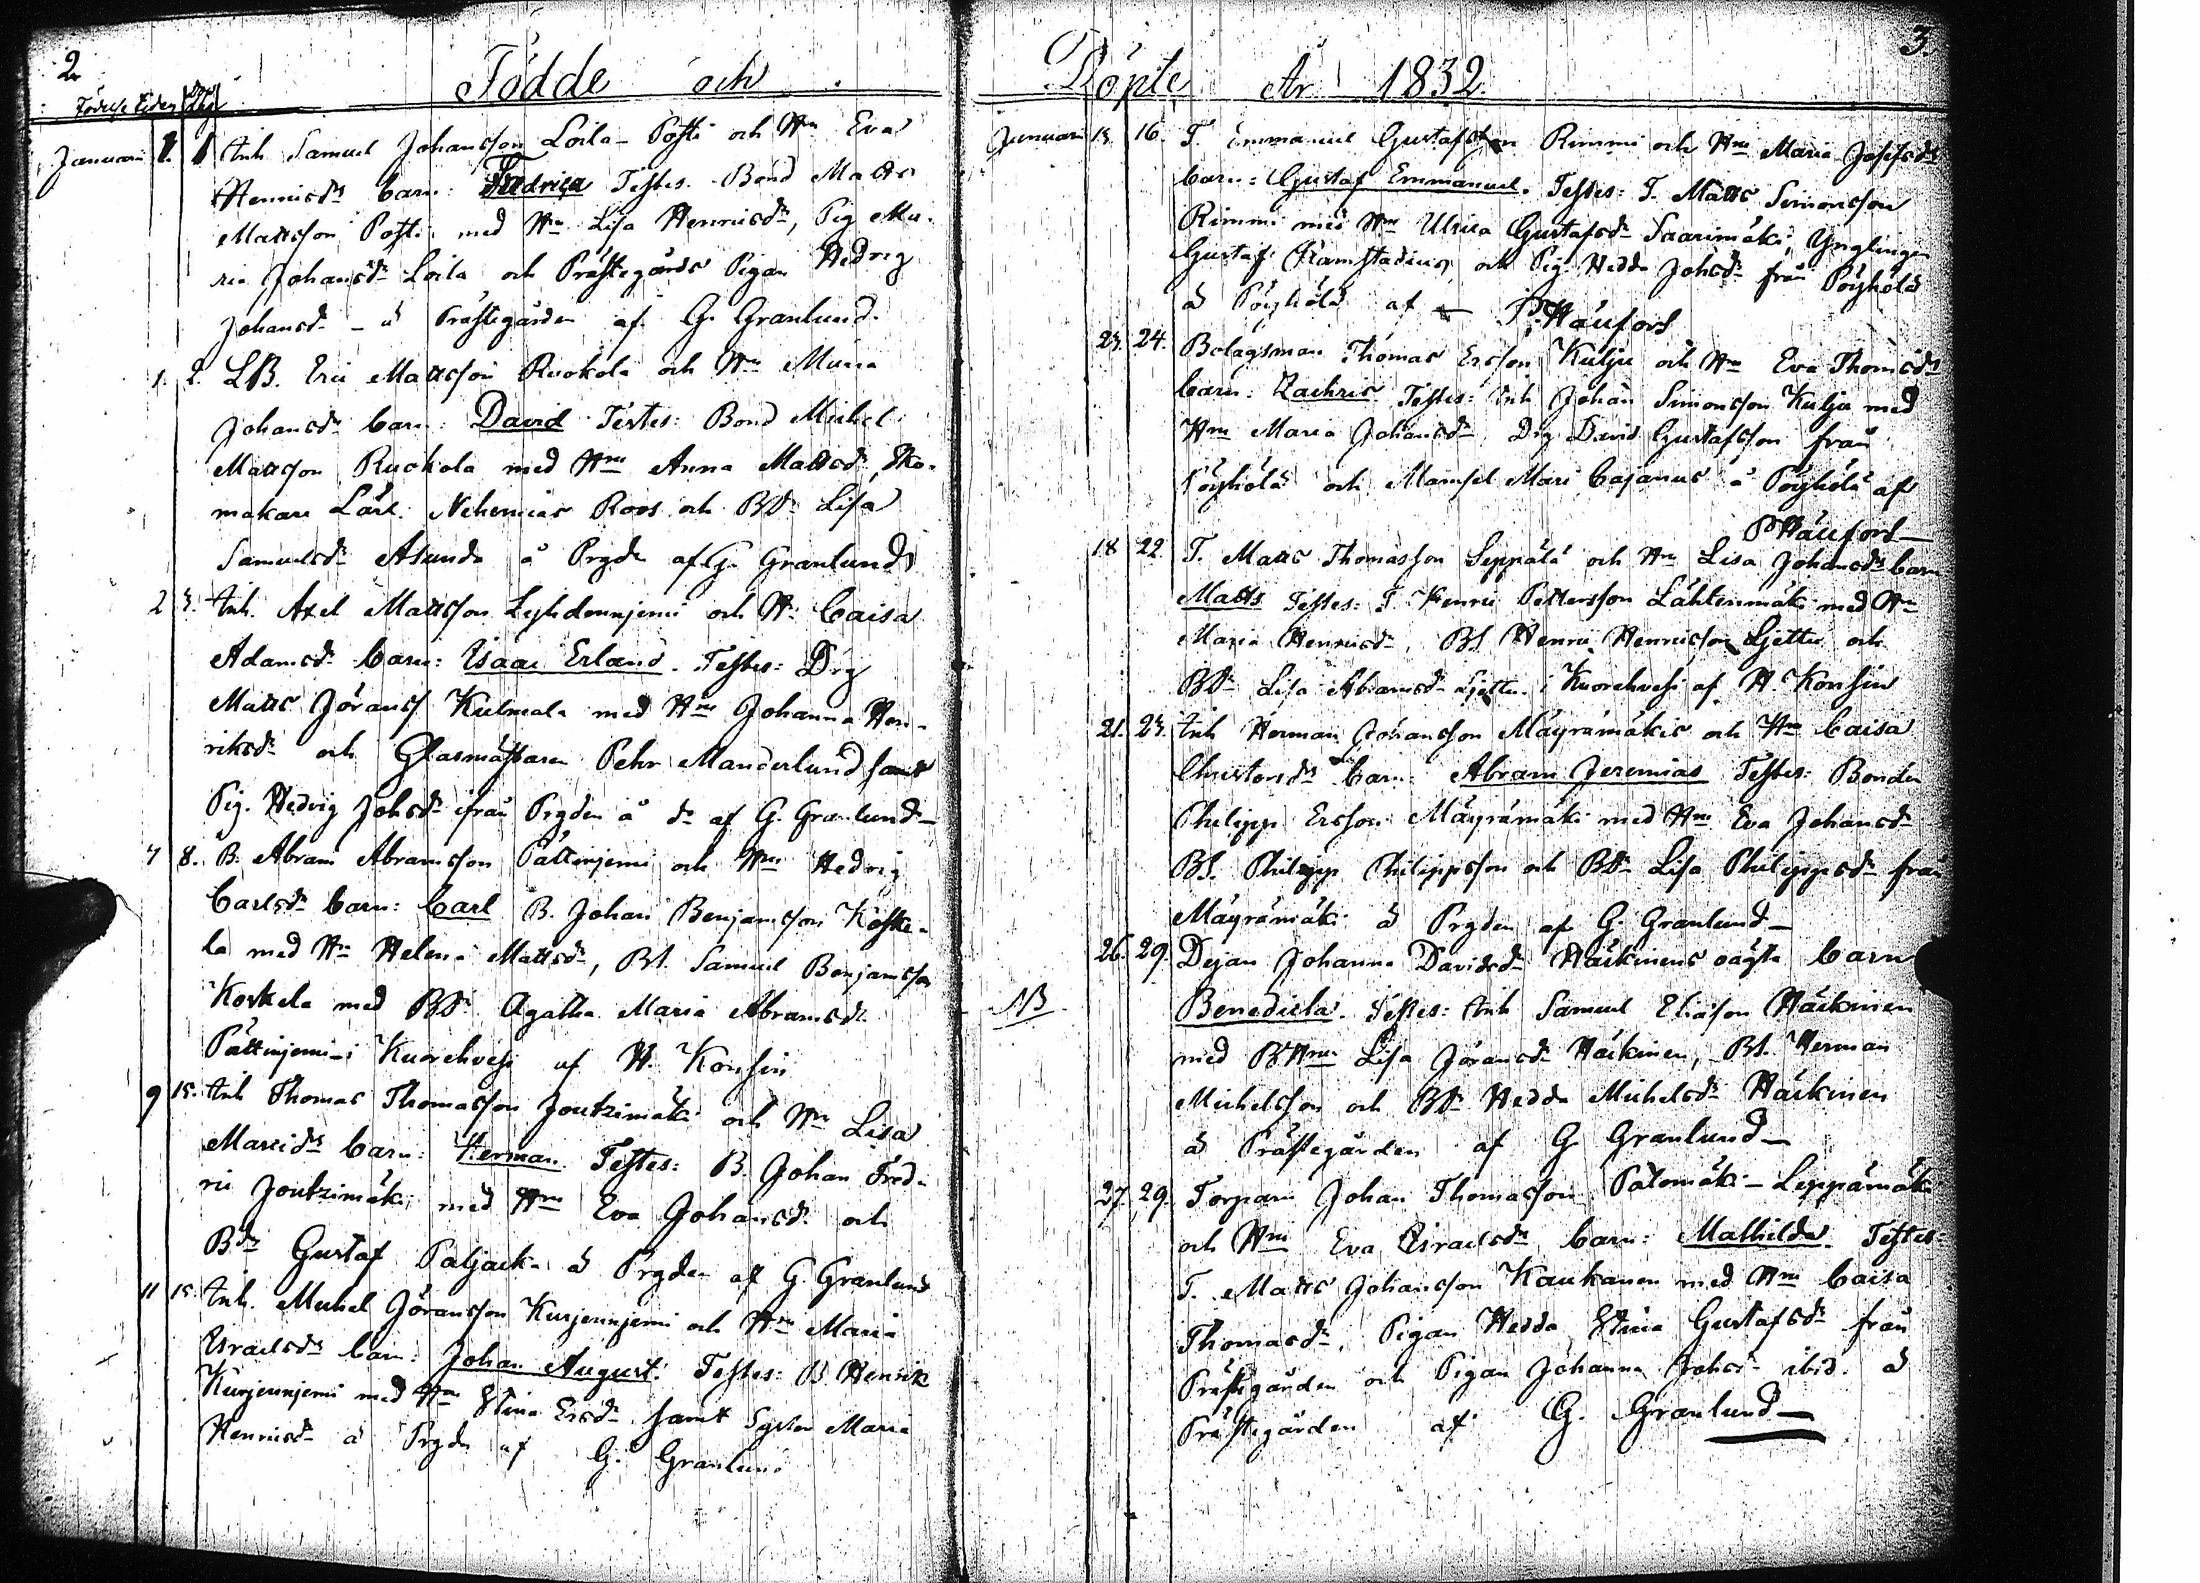 2.
Födde och
Januari 1. 1 Inh Samuel Johansson Loila-Posti och Hu Eva
Henricsdr barn: Fredrica Testes. Bond Matts
Mattsson Posti med Hu Lisa Henricsdr, Pig Ma-
ria Johansdr Loila och Prästegårds Pigan Hedvig
Johansdr - å Prästegården af G. Granlund.
1. 2. LB. Eric Mattsson Ruokola och Hu Maria
Johansdr barn: David Testes: Bond Michel
Mattsson Ruokola med Hu Anna Mattsdr, Sko-
makare Lärl. Nehemias Roos och BDr Lisa
Samuelsdr Asunda å Prgdn af G. Granlund
2 3. Inh. Axel Mattsson Lyhdennjemi och H. Caisa
Adamsdr barn: Isaac Erland. Testes: Drg
Matts Jöranss Kulmala med Hu Johanna Hen-
riksdr och Glasmästaren Pehr Manderlund samt
Pig. Hedvig Johsdr ifrån Prgden å do af G. Granlund
7 8. B. Abram Abramsson Pättinjemi och Hu Hedvig
Carlsdr barn: Carl B. Johan Benjamsson Koske-
la med Hu Helena Mattsdr, BS. Samuel Benjamsson
Koskela med BDr Agatha Maria Abramsdr
Pättinjemi i Kuorehvesi af H. Konsin
9 15. Inh Thomas Thomasson Joutzimäki och Hu Lisa
Marcidr barn: Herman Testes: B. Johan Fred-
ric Joutzimäki med Hu Eva Johansdr och
Bdr Gustaf Paljack- å Prgden af G. Granlund
11 15. Inh. Michel Jöransson Kurjennjemi och Hu Maria
Israelsdr barn: Johan August. Testes: B Henrik
Kurjennjemi med Hu Stina Ersdr samt Syster Maria
Henricsdr å Prgdn af G. Granlund
3.
Döpte År 1832.
Januari 15 16. T. Emmanuel Gustafsson Rimmi och Hu Maria Josefsdr
barn: Gustaf Emmanuel. Testes: T. Matts Simonsson
Rimmi med Hu Ulrica Gustafsdr Saarimäki, Ynglingen
Gustaf Framstadius och Pig. Hedda Johsdr från Pöyhölä
å Pöyhölä af P. Häufors
23. 24. Bolagsman Thomas Ersson Kulju och Hu Eva Thomsdr
barn: Zachris Testes: Inh Johan Simonsson Kulju med
Hu Maria Johansdr Drg David Gustafsson från
Pöyhölä och Mamsel Mari Cajanus å Pöyhölä af
P Häufors
18 22 T. Matts Thomasson Seppälä och Hu Lisa Johansdr barn
Matts Testes: T. Henric Pettersson Lähtenmäki med Hu
Maria Henricsdr, BS Henric Henricsson Ljettu och
BDr Lisa Abramsdr Ljettu i Kuorehvesi af H. Konsin
21. 23. Inh Herman Johansson Mäyrämäkis och Hu Caisa
Christersdr barn: Abram Jeremias Testes: Bonden
Philipp Ersson Mäyrämäki med Hu Eva Johansdr
BS. Philipp Philippsson och BDr Lisa Philippsdr från
Mäyrämäki å Prgden af G. Granlund
26. 29. Dejan Johanna Davidsdr Häckinens oägta barn
NB Benedicta. Testes: Inh Samuel Eliasson Häckinen
med BHu Lisa Jöransdr Häckinen, BS. Herman
Michelsson och BDr Hedda Michelsdr Häckinen
å Prästegården af G Granlund
27. 29. Torparn Johan Thomasson Palomäki-Leppämäki
och Hu Eva Israelsdr barn: Mathilda. Testes:
T. Matts Johansson Kaukanen med Hu Caisa
Thomasdr, Pigan Hedda Stina Gustafsdr från
Prästegården och Pigan Johanna Johsdr ibid. å
Prästegården af G. Granlund